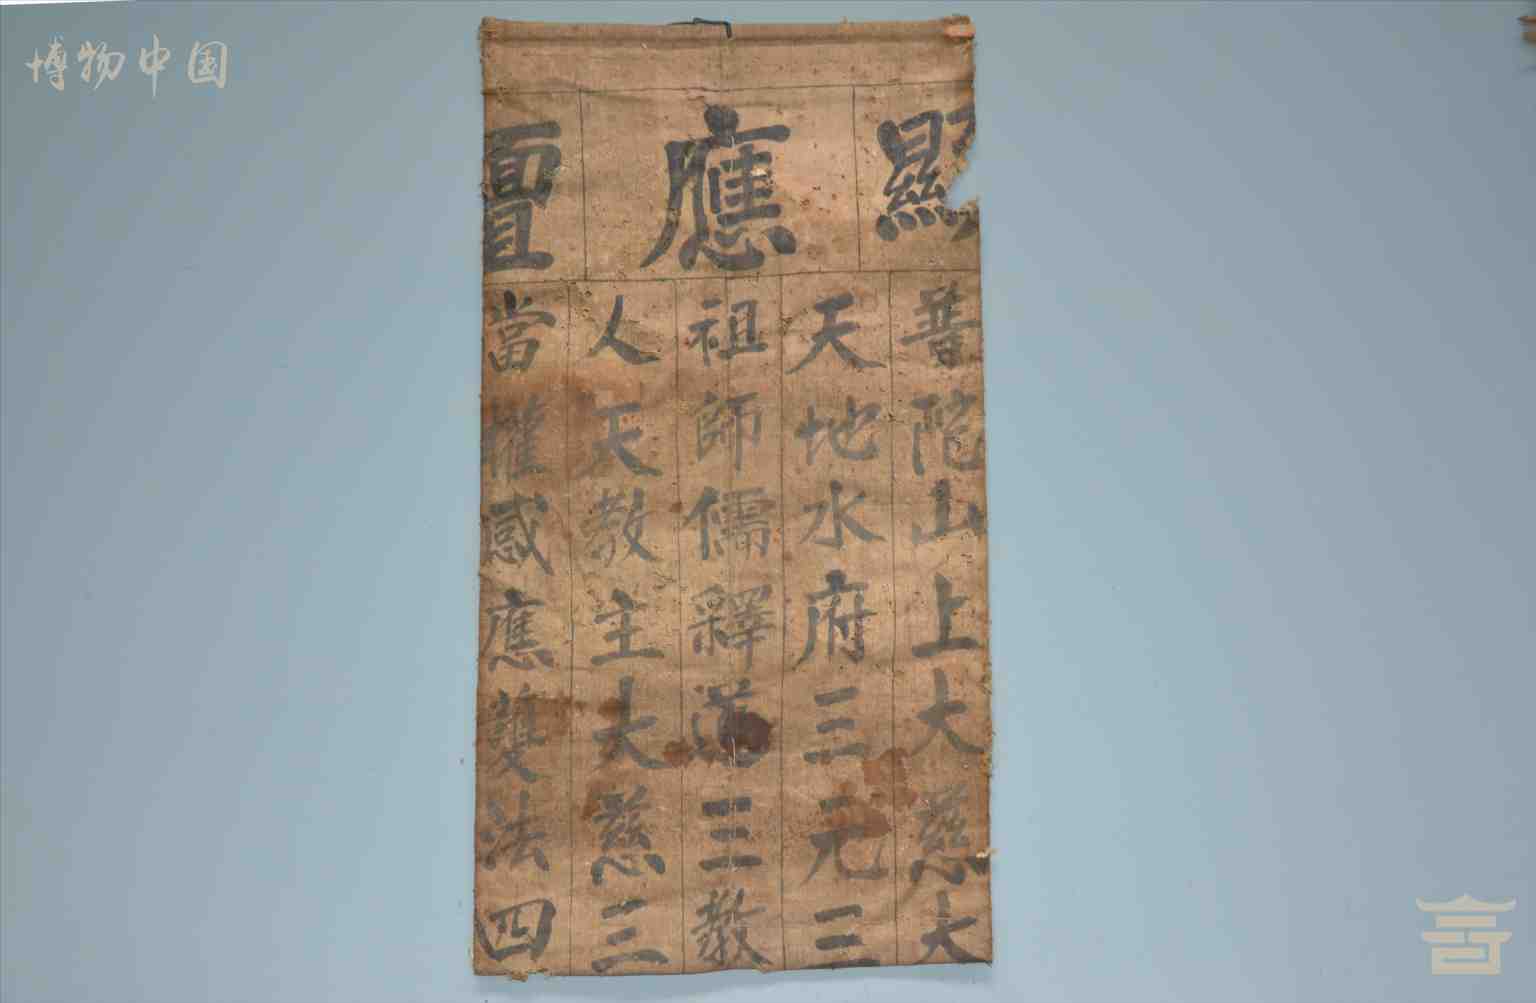 博物中国
顯應
普陀山上大慈大
天地水府三元三
祖師儒釋道三教
人天教主大慈三
當權感應護法四